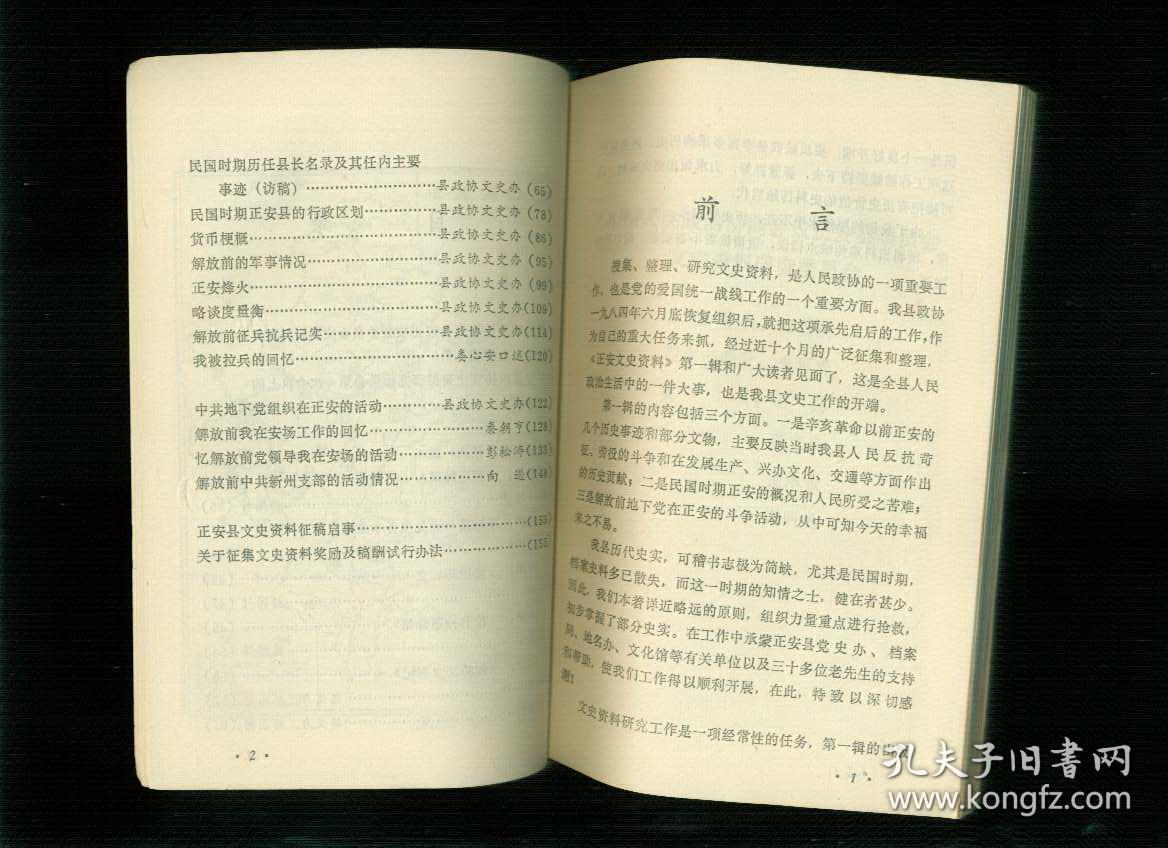 民国时期历任县长名录及其任内主要
事迹（访稿）……………………县政协文史办（65）
民国时期正安县的行政区划…………县政协文史办（78）
货币梗概……………………………县政协文史办（86）
解放前的军事情况……………………县政协文史办（95）
正安烽火……………………………县政协文史办（99）
略谈度量衡…………………………县政协文史办（109）
解放前征兵抗兵记实…………………县政协文史办（114）
我被拉兵的回忆………………………娄心安口述（120）
中共地下党组织在正安的活动…………县政协文史办（122）
解放前我在安场工作的回忆……………秦朝亨（128）
忆解放前党领导我在安场的活动…………彭松涛（133）
解放前中共新州支部的活动情况…………向 （148）
正安县文史资料征稿启事………………（153）
关于征集文史资料奖励及稿酬试行办法……………（155）
· 2 ·
前 言
搜集、整理、研究文史资料，是人民政协的一项重要工
作，也是党的爱国统一战线工作的一个重要方面。我县政协
一九八四年六月底恢复组织后，就把这项承先启后的工作，作
为自己的重大任务来抓，经过近十个月的广泛征集和整理，
《正安文史资料》第一辑和广大读者见面了，这是全县人民
政治生活中的一件大事，也是我县文史工作的开端。
第一辑的内容包括三个方面。一是辛亥革命以前正安的
几个历史事迹和部分文物，主要反映当时我县人民反抗苛
征、劳役的斗争和在发展生产、兴办文化、交通等方面作出
的历史贡献；二是民国时期正安的概况和人民所受之苦难；
三是解放前地下党在正安的斗争活动，从中可知今天的幸福
来之不易。
我县历代史实，可稽书志极为简缺，尤其是民国时期，
档案史料多已散失，而这一时期的知情之士，健在者甚少。
因此，我们本着详近略远的原则，组织力量重点进行抢救，
初步掌握了部分史实。在工作中承蒙正安县党史办、档案
局、地名办、文化馆等有关单位以及三十多位老先生的支持
和帮助，使我们工作得以顺利开展，在此，特致以深切感
谢！
文史资料研究工作是一项经常性的任务，第一辑的
· 1 ·
孔夫子旧书网
www.kongfz.com